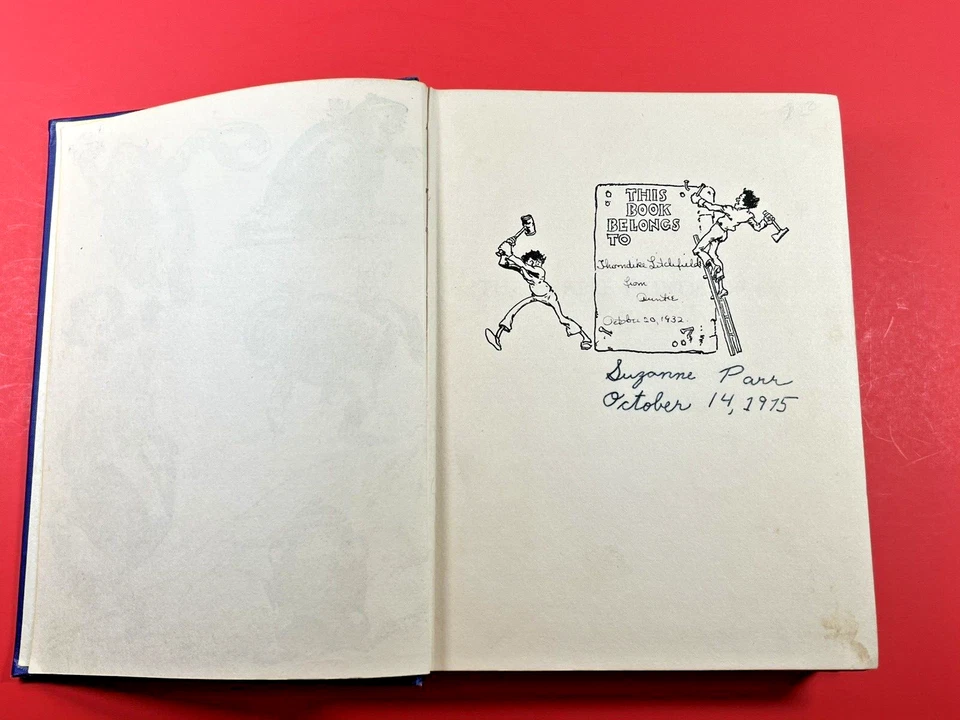 THIS
BOOK
BELONGS
TO
Thorndike Litchfield
from
Auntie
October 20, 1932.
Suzanne Parr
October 14, 1975